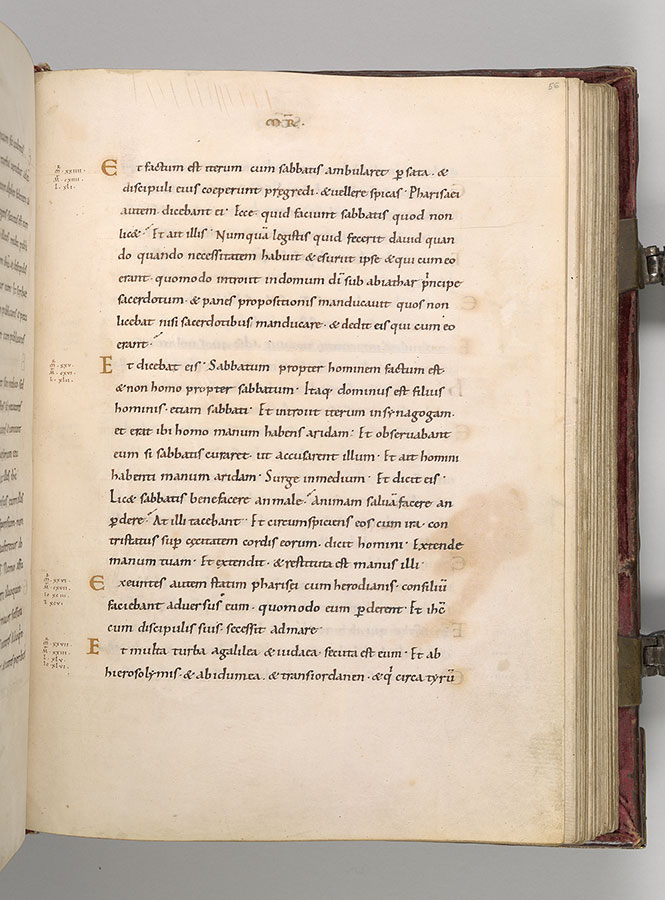 56
MR̄.
Et factum est iterum cum sabbatis ambularet p̱ sata · &
discipuli eius coeperunt pregredi · & vellere spicas · Pharisaei
autem dicebant ei · Ecce quid faciunt sabbatis quod non
lic& · Et ait illis · Numquā legistis quid fecerit david quan
do quando necessitatem habuit & esuriit ipse & qui cum eo
erant · quomodo introiit in domum dī sub abiathar prīncipe
sacerdotum · & panes propositionis manducavit quos non
licebat nisi sacerdotibus manducare · & dedit eis qui cum eo
erant ·
Et dicebat eis · Sabbatum propter hominem factum est
& non homo propter sabbatum · Itaq· dominus est filius
hominis · etiam sabbati · Et introiit iterum in synagogam ·
et erat ibi homo manum habens aridam · Et observabant
eum si sabbatis curaret · ut accusarent illum · Et ait homini
habenti manum aridam · Surge in medium · Et dicit eis ·
Lic& sabbatis benefacere an male · Animam salvā facere an
p̱dere · At illi tacebant · Et circumspiciens eos cum ira · con
tristatus sup̱ cęcitatem cordis eorum · dicit homini · Extende
manum tuam · Et extendit · & restituta est manus illi ·
Exeuntes autem statim pharisei cum herodianis · consiliū
faciebant adversus eum · quomodo eum p̱derent · Et ihc̄
cum discipulis suis · secessit ad mare
Et multa turba a galilea & iudaea · secuta est eum · Et ab
hierosolymis · & ab idumea · & transiordanen · & q̇ circa tyrū